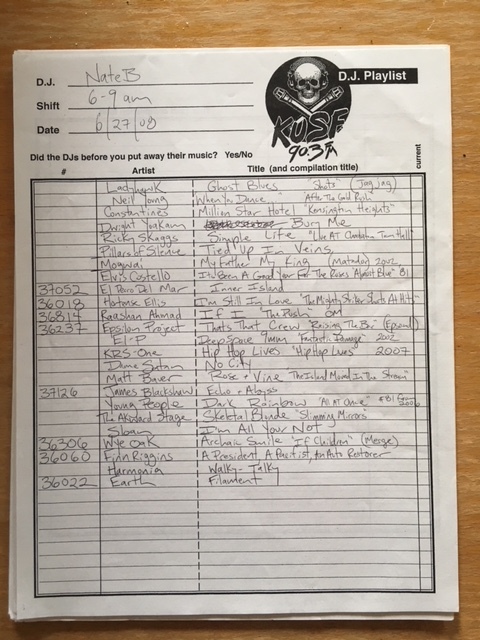 D.J. Nate B
D.J. Playlist
Shift 6-9 am
Date 6/27/08
KUSF
90.3 FM
Did the DJs before you put away their music? Yes/No
# Artist Title (and compilation title) current
Ladyhawk Ghost Blues "Shots" (Jagjag)
Neil Young When You Dance After The Gold Rush
Constantines Million Star Hotel "Kensington Heights"
Dwight Yoakam Bury Me
Ricky Skaggs Simple Life "Live AT Charleston Music Hall"
Pillars of Silence Tied Up In Veins
Mogwai My Father My King (Matador) 2002
Elvis Costello It's Been A Good Year For The Roses "Almost Blue" 81
37052 El Perro Del Mar Inner Island
36018 Hortense Ellis I'm Still In Love "The Mighty Striker Shoots At Hits"
36814 Raashan Ahmad If I "The Push" OM
36237 Epsilon Project Thats That Crew "Raising The Bar" (Epsonl)
El-P Deep Space 9mm "Fantastic Damage" 2002
KRS-One Hip Hop Lives "Hip Hop Lives" 2007
Dame Satan No City
Matt Bauer Rose + Vine The Island Moved In The Storm
37126 James Blackshaw Echo + Abyss
Young People Dark Rainbow "All At Once" #81 from 2006
The Awkward Stage Skeletal Blonde "Slimming Mirrors"
Sloan I'm All You Not
36306 Wye Oak Archaic Smile "If Children" (Merge)
36060 Finn Riggins A President, A Pacifist, An Auto Restorer
Harmonia Walky-Talky
36022 Earth Filament